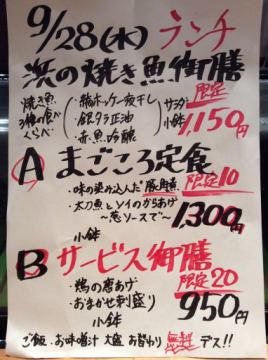 9/28(水) ランチ
浜の焼き魚御膳
焼き魚3種の食べくらべ
・縞ホッケ一夜干し
・銀ダラ正油
・赤魚吟醸
サラダ
小鉢
限定
1,150円
A まごころ定食
・味の染み込んだ豚角煮
限定10
・太刀魚とソイのからあげ
〜葱ソースで〜
小鉢
1,300円
B サービス御膳
・鶏の唐あげ
限定20
・おまかせ刺盛り
小鉢
950円
ご飯、お味噌汁 大盛 お替わり 無料デス!!